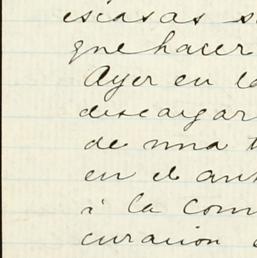 escasas
que hacer
Ayer en la
descargar
de una
en el
á la
curacion